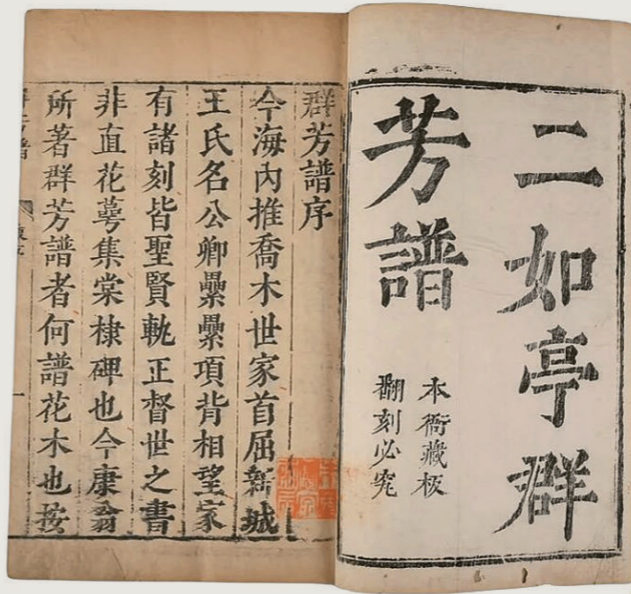 二如亭群
芳譜
本衙藏板
翻刻必究
群芳譜序
今海內推喬木世家首屈新城
王氏名公卿纍纍項背相望家
有諸刻皆聖賢軌正督世之書
非直花萼集棠棣碑也今康翁
所著群芳譜者何譜花木也按